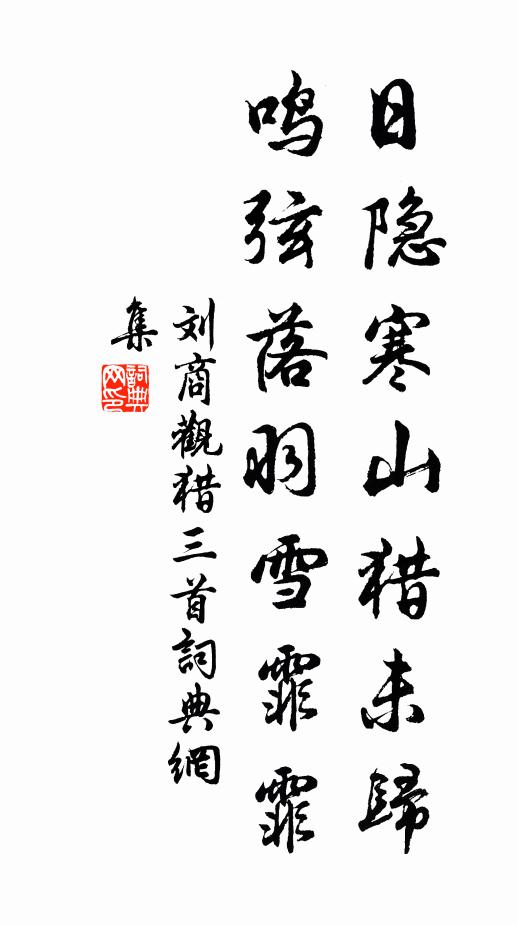 日隐寒山猎未歸
鸣弦落羽雪霏霏
刘商觀猎三首詞典網
集
詞典网印